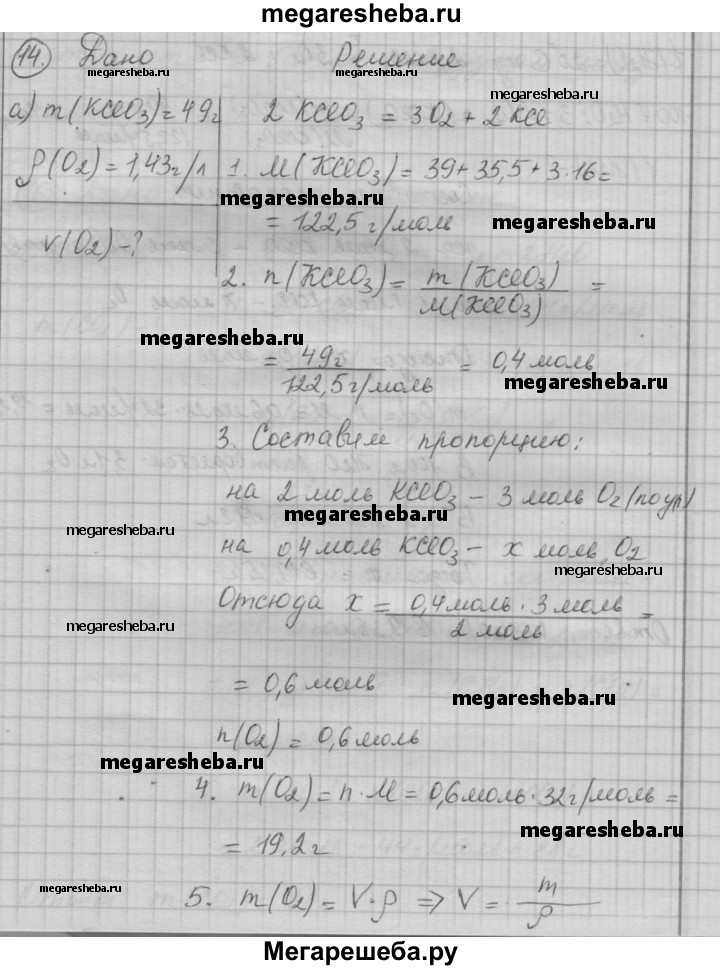 megaresheba.ru
14. Дано Решение
megaresheba.ru megaresheba.ru
а) m(KClO3)=49г 2 KClO3 = 3O2 + 2 KCl
megaresheba.ru megaresheba.ru
ρ(O2)=1,43г/л 1. M(KClO3)=39+35,5+3·16=
megaresheba.ru
= 122,5 г/моль
megaresheba.ru
V(O2)-?
2. n(KClO3)= m(KClO3)/M(KClO3) =
megaresheba.ru
= 49г/122,5г/моль = 0,4 моль
megaresheba.ru
3. Составим пропорцию:
на 2 моль KClO3 - 3 моль O2 (по ур)
megaresheba.ru
megaresheba.ru
на 0,4 моль KClO3 - x моль O2
megaresheba.ru
Отсюда x = 0,4 моль · 3 моль/2 моль =
megaresheba.ru
= 0,6 моль
megaresheba.ru
n(O2) = 0,6 моль
megaresheba.ru
4. m(O2)=n·M=0,6 моль·32г/моль=
megaresheba.ru
= 19,2 г
megaresheba.ru
5. m(O2)=V·ρ ⇒ V = m/ρ
Мегарешеба.ру